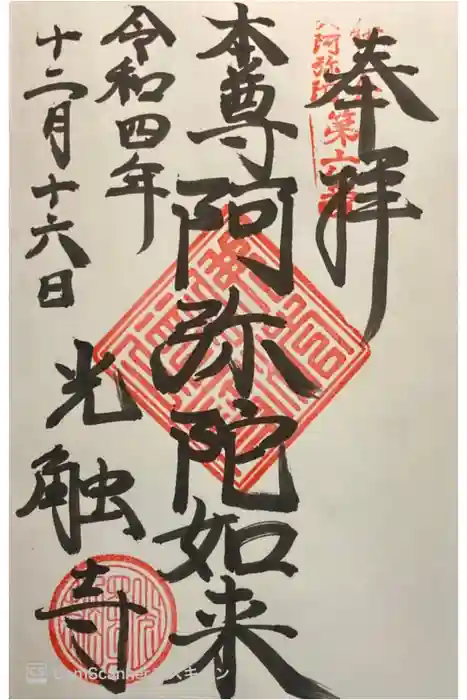 奉拝
本尊阿弥陀如来
令和四年
十二月十六日
光触寺
CS CamScannerでスキャン